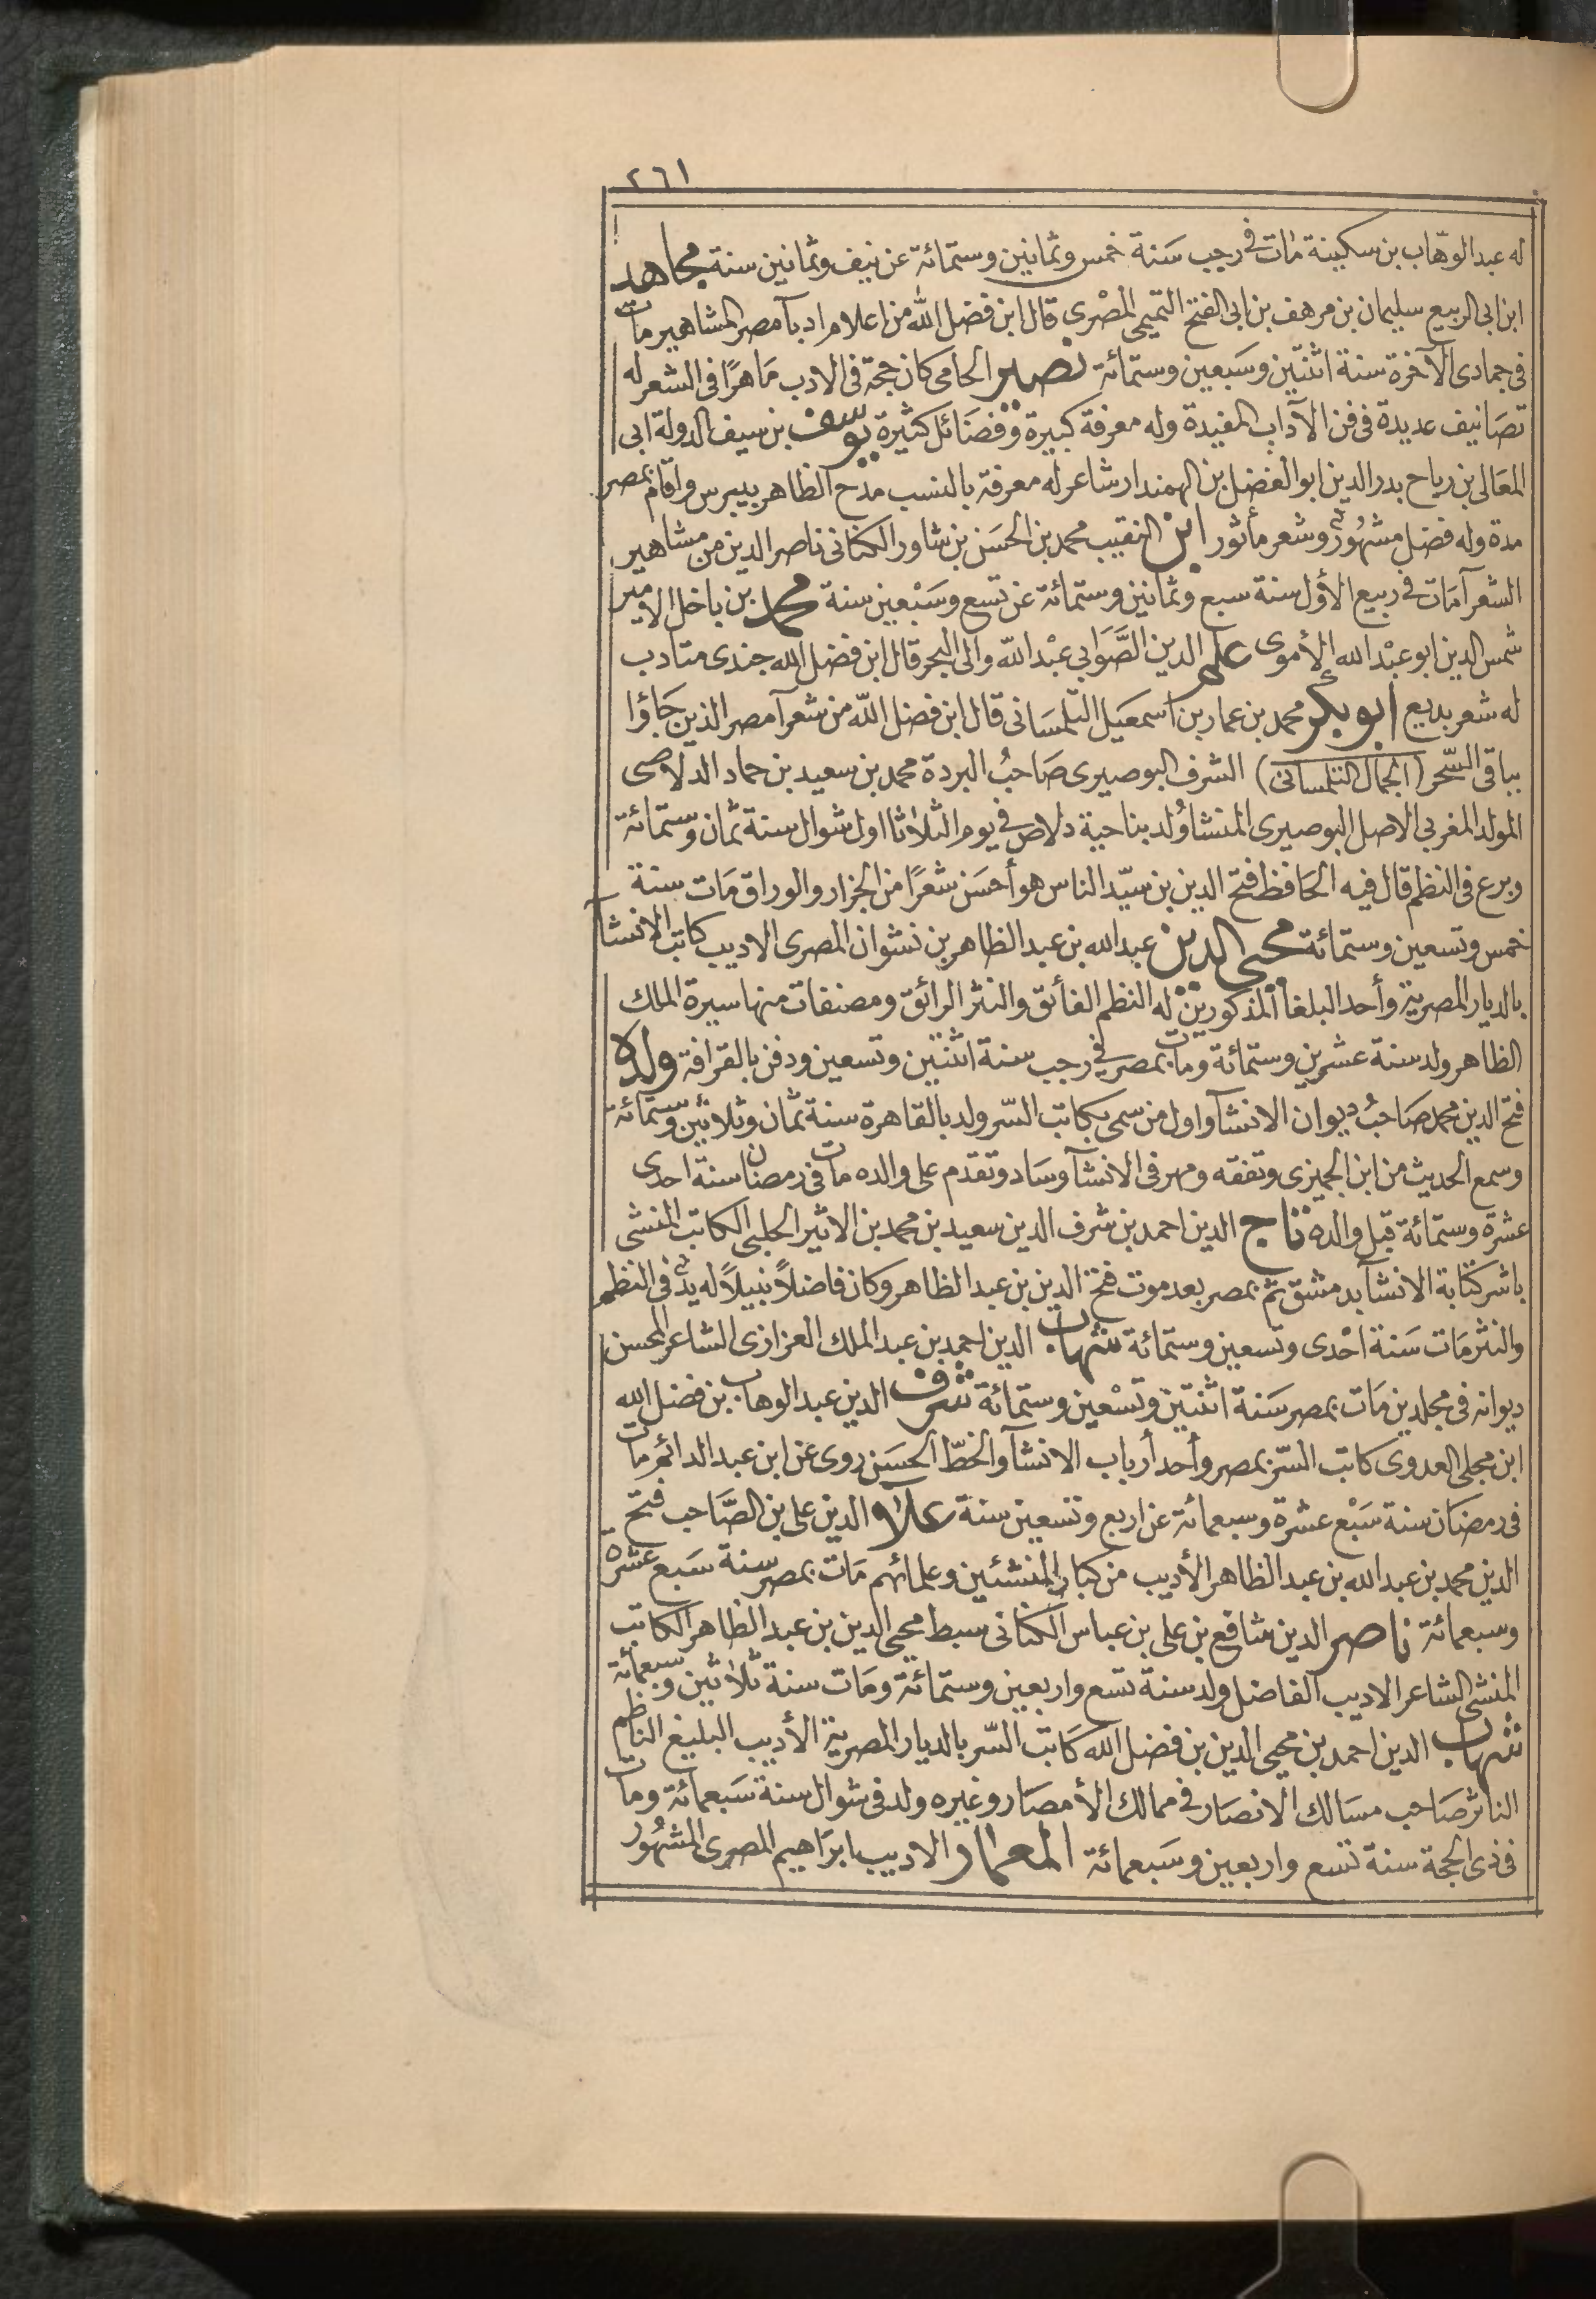 ٢٦١
له عبد الوهّاب بن سكينة مات في رجب سَنة خمس وثمانين وستمائة عن نيف وثمانين سنة مجاهد
ابن ابى الربيع سليمان بن مرهف بن ابى الفتح التميمى المصْرى قال ابن فضل الله من اعلام ادبآ مصر المشاهير مات
فى جمادى الآخرة سنة اثنتين وسَبعين وستمائة نصير الحامى كان حجة فى الادب مَاهرًا فى الشعر له
تصَانيف عديدة فى فن الآداب المفيدة وله معرفة كبيرة وفضَائل كثيرة يوسف بن سيف الدولة ابى
المعَالى بن رياح بدر الدين ابو الفضل بن المهمندار شاعر له معرفة بالنسب مدح الظاهر بيبرس واقام بمصر
مدة وله فضل مشهُورٌ وشعر مأثور ابن النقيب محمد بن الحسَن بن شاور الكنانى ناصر الدين من مشاهير
الشعرآ مَات فى ربيع الأول سنة سبع وثمانين وستمائة عن تسع وسَبْعين سنة محمد بن باخل الامير
شمس الدين ابو عبْد الله الأموى علم الدين الصَّوَابى عبْد الله والى البحر قال ابن فضل الله جندى متادب
له شعر بديع ابو بكر محمد بن عمار بن اسمعيل التلمسَانى قال ابن فضل الله من شعرآ مصر الذين جَاؤا
بباقى السّحر (الجمال التلمسانى) الشرف البوصيرى صَاحبُ البردة محمد بن سعيد بن حماد الدلاصى
المولد المغربى الاصل البوصيرى المنشا وُلد بناحية دلاص فى يوم الثلاثا اول شوال سنة ثمان وستمائة
وبرع فى النظم قال فيه الحَافظ فتح الدين بن سيّد الناس هو أحسَن شعرًا من الجزار والوراق مَات سنة
خمس وتسعين وستمائة محيى الدين عبد الله بن عبد الظاهر بن نشوان المصرى الاديب كاتب الانشآ
بالديار المصرية وأحد البلغآ المذكورين له النظم الفائق والنثر الرائق ومصنفات منها سيرة الملك
الظاهر ولد سنة عشرين وستمائة ومات بمصر فى رجب سنة اثنتين وتسعين ودفن بالقرافة ولده
فتح الدين محمد صَاحبُ ديوان الانشآ واول من سمى بكاتب السّر ولد بالقاهرة سنة ثمان وثلاثين وستمائة
وسمع الحديث من ابن الجميزى وتفقه ومهر فى الانشآ وسَاد وتقدم على والده مات فى رمضان سنة احدى
عشرة وستمائة قبل والده تاج الدين احمد بن شرف الدين سعيد بن محمد بن الاثير الحلبى الكاتب المنشى
باشر كتابة الانشآ بدمشق ثم بمصر بعد موت فتح الدين بن عبد الظاهر وكان فاضلاً نبيلاً له يدٌ فى النظم
والنثر مَات سَنة احْدى وتسعين وستمائة شهاب الدين احمد بن عبد الملك العزازى الشاعر المحسن
ديوانه فى مجلدين مَات بمصر سَنة اثنتين وتسْعين وستمائة شرف الدين عبد الوهاب بن فضل الله
ابن مجلى العدوى كاتب السّر بمصر وأحد أرباب الانشآ والخطّ الحسَن روى عن ابن عبد الدائم مات
فى رمضَان سنة سَبْع عشرة وسبعمائة عن اربع وتسعين سنة علاء الدين على بن الصَّاحب فتح
الدين محمد بن عبد الله بن عبد الظاهر الأديب من كبار المنشئين وعلمائهم مَات بمصر سنة سَبع عشرة
وسبعمائة ناصر الدين شافع بن على بن عباس الكنانى سبط محيى الدين بن عبد الظاهر الكاتب
المنشى الشاعر الاديب الفاضل ولد سنة تسع واربعين وستمائة ومَات سنة ثلاثين وسبعمائة
شهاب الدين احمد بن محيى الدين بن فضل الله كَاتب السّر بالديار المصرية الأديب البليغ الناظم
الناثر صَاحب مسَالك الانصَار فى ممالك الأمصَار وغيره ولد فى شوال سنة سَبعمائة ومات
فى ذى الحجة سنة تسع واربعين وسَبعمائة المعمار الاديب ابرَاهيم المصرى المشهُور